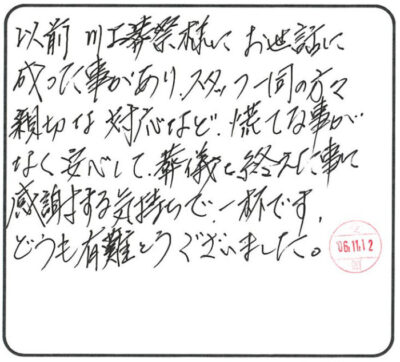 以前 川上葬祭様に お世話に
成った事があり、スタッフ一同の方々
親切な対応など、慌てる事が
なく安心して、葬儀を終えた事に
感謝する気持ちで、一杯です。
どうも有難とうございました。
'06.11.12